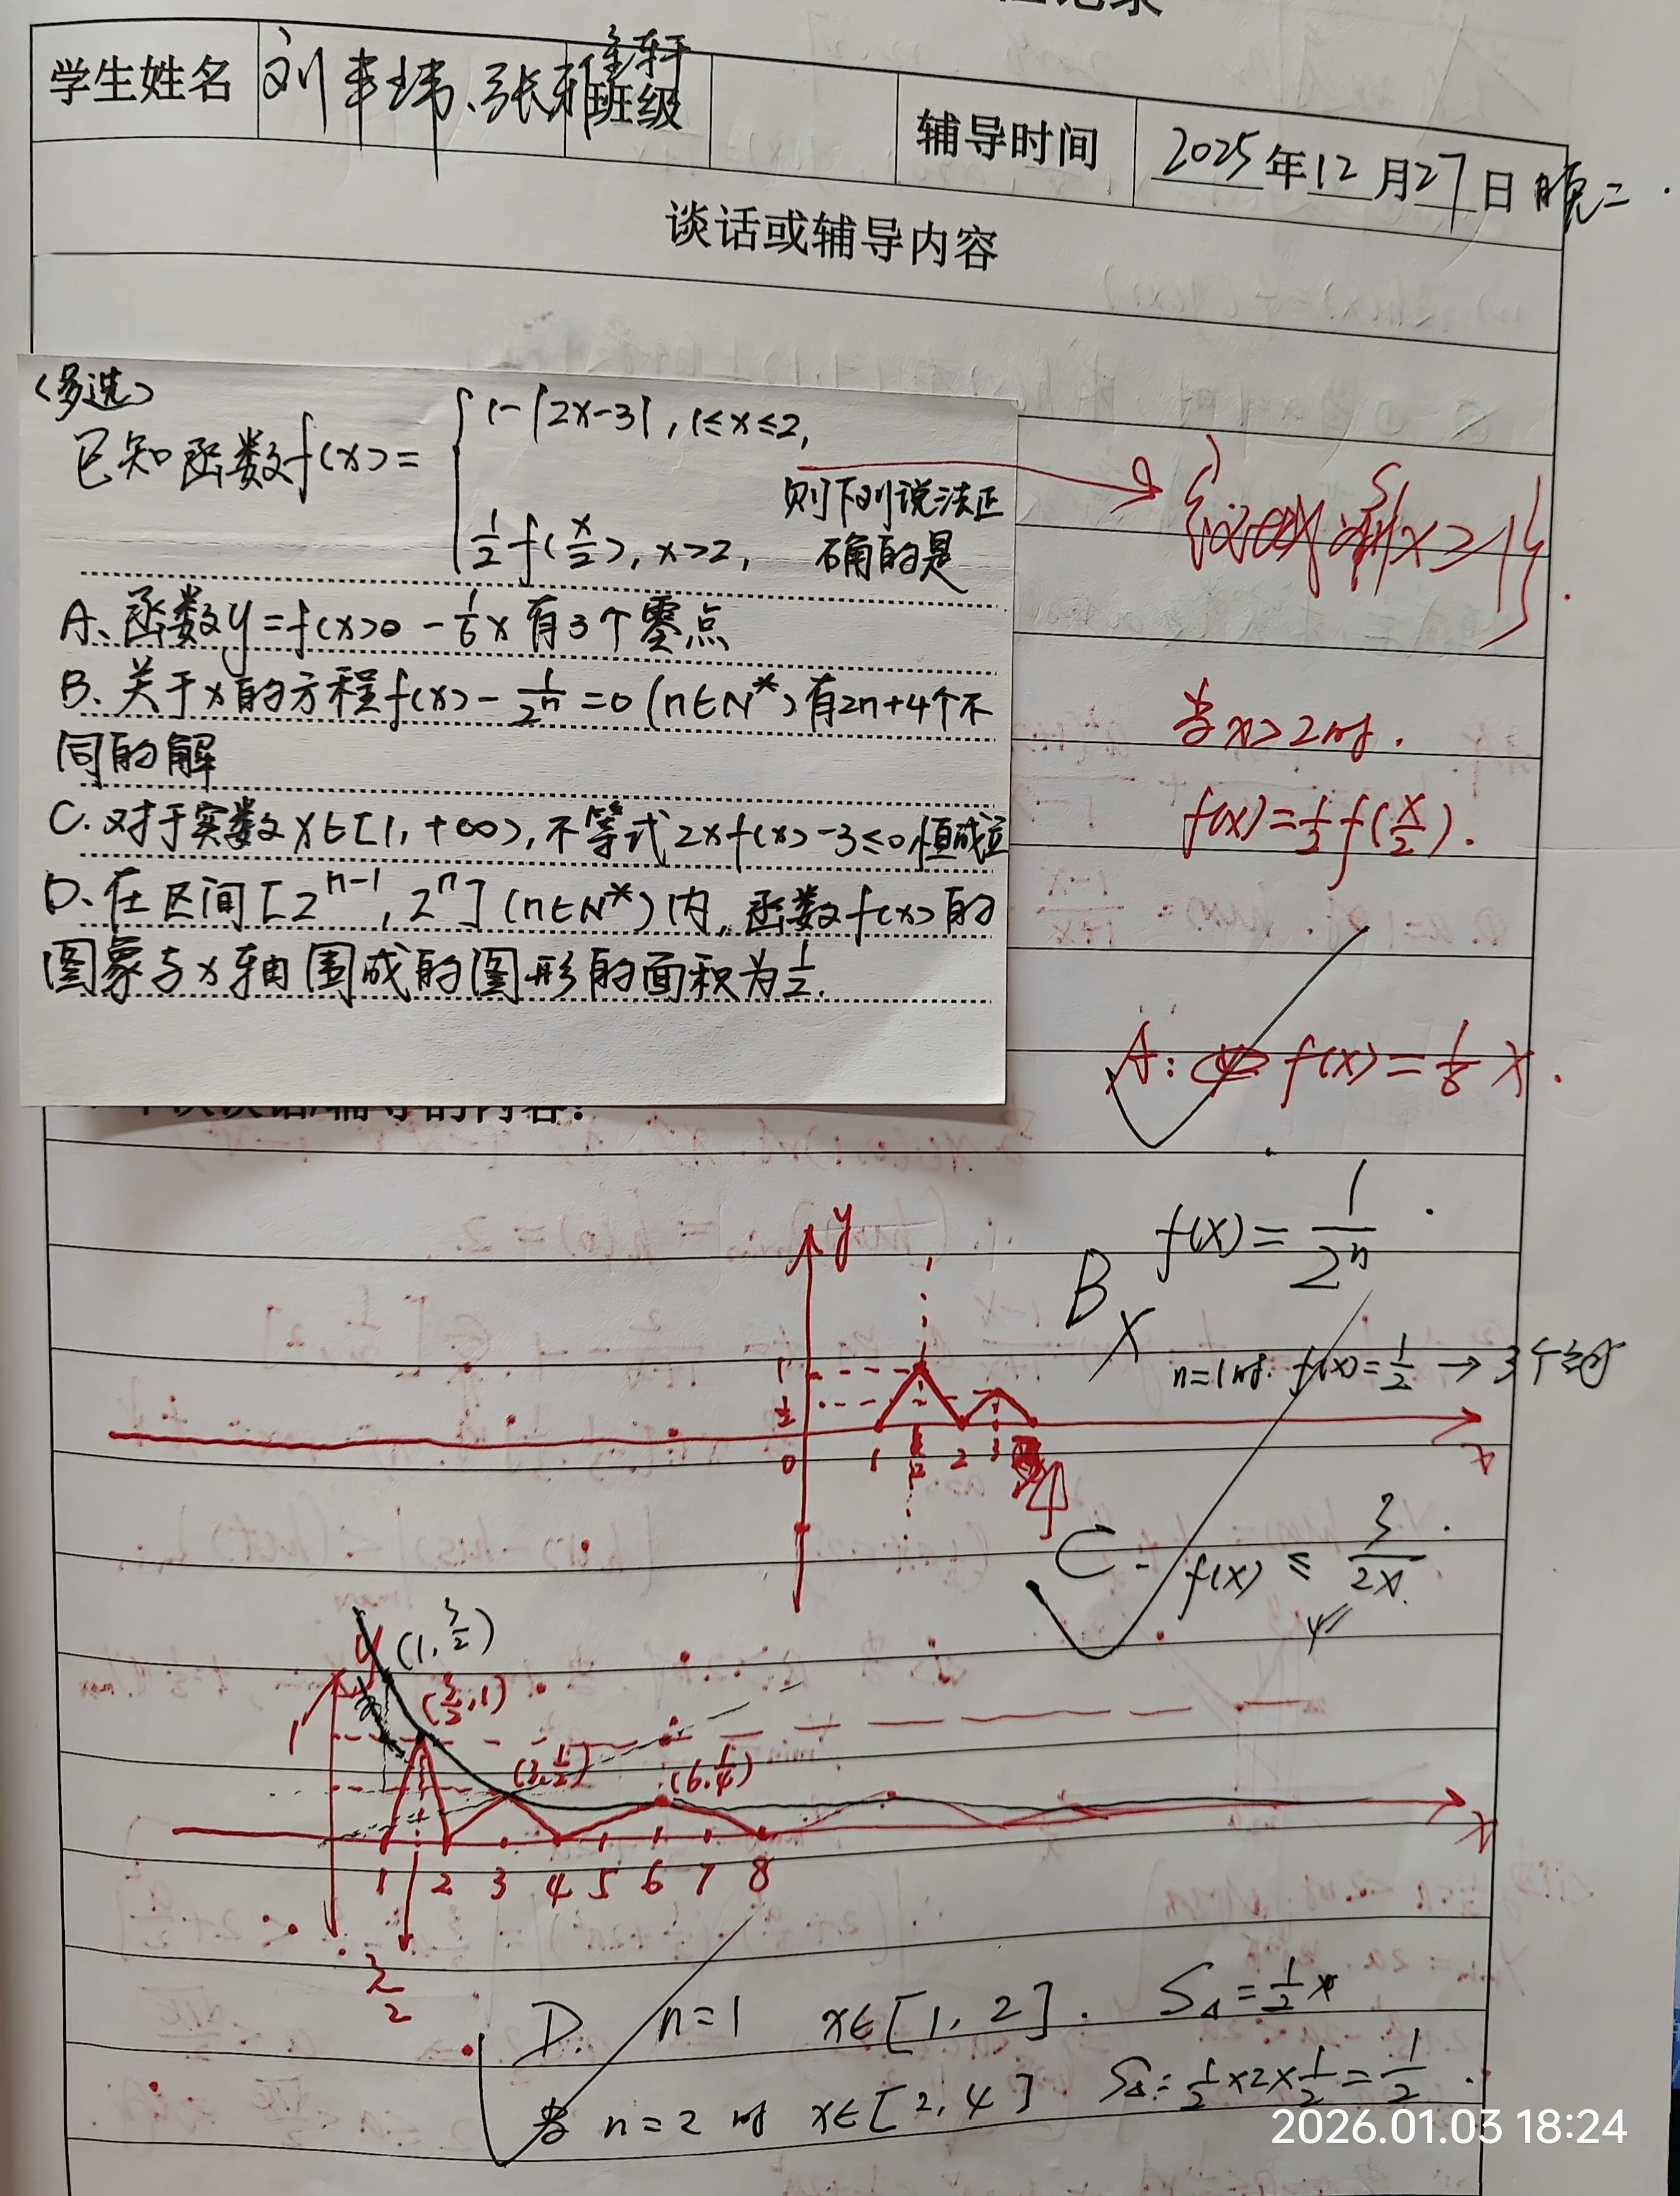 学生姓名
班级
辅导时间
2025年12月27日 晚二.
谈话或辅导内容
(多选)
已知函数f(x)={1-|2x-3|, 1≤x≤2,
1/2 f(x/2), x>2,
则下列说法正
确的是
A、函数y=f(x) -1/6 x 有3个零点
B、关于x的方程f(x)-1/2^n=0 (n∈N*)有2n+4个不
同的解
C.对于实数x∈[1,+∞),不等式2xf(x)-3≤0,恒成立
D、在区间[2^{n-1}, 2^n] (n∈N*)内,函数f(x)的
图象与x轴围成的图形的面积为1/2.
当x>2时.
f(x)=1/2 f(x/2).
A: f(x)=1/6 x.
B f(x)=1/2^n.
n=1时. f(x)=1/2 → 3个
y
1
1/2
0 1 3/2 2 3
x
C. f(x) ≤ 3/2x.
y
(1, 3/2)
(3/2, 1)
(3, 1/2)
(6, 1/4)
1
1 2 3 4 5 6 7 8
x
3/2
D. n=1 x∈[1, 2]. S△=1/2
当 n=2 时 x∈[2, 4] S△=1/2×2×1/2=1/2.
2026.01.03 18:24